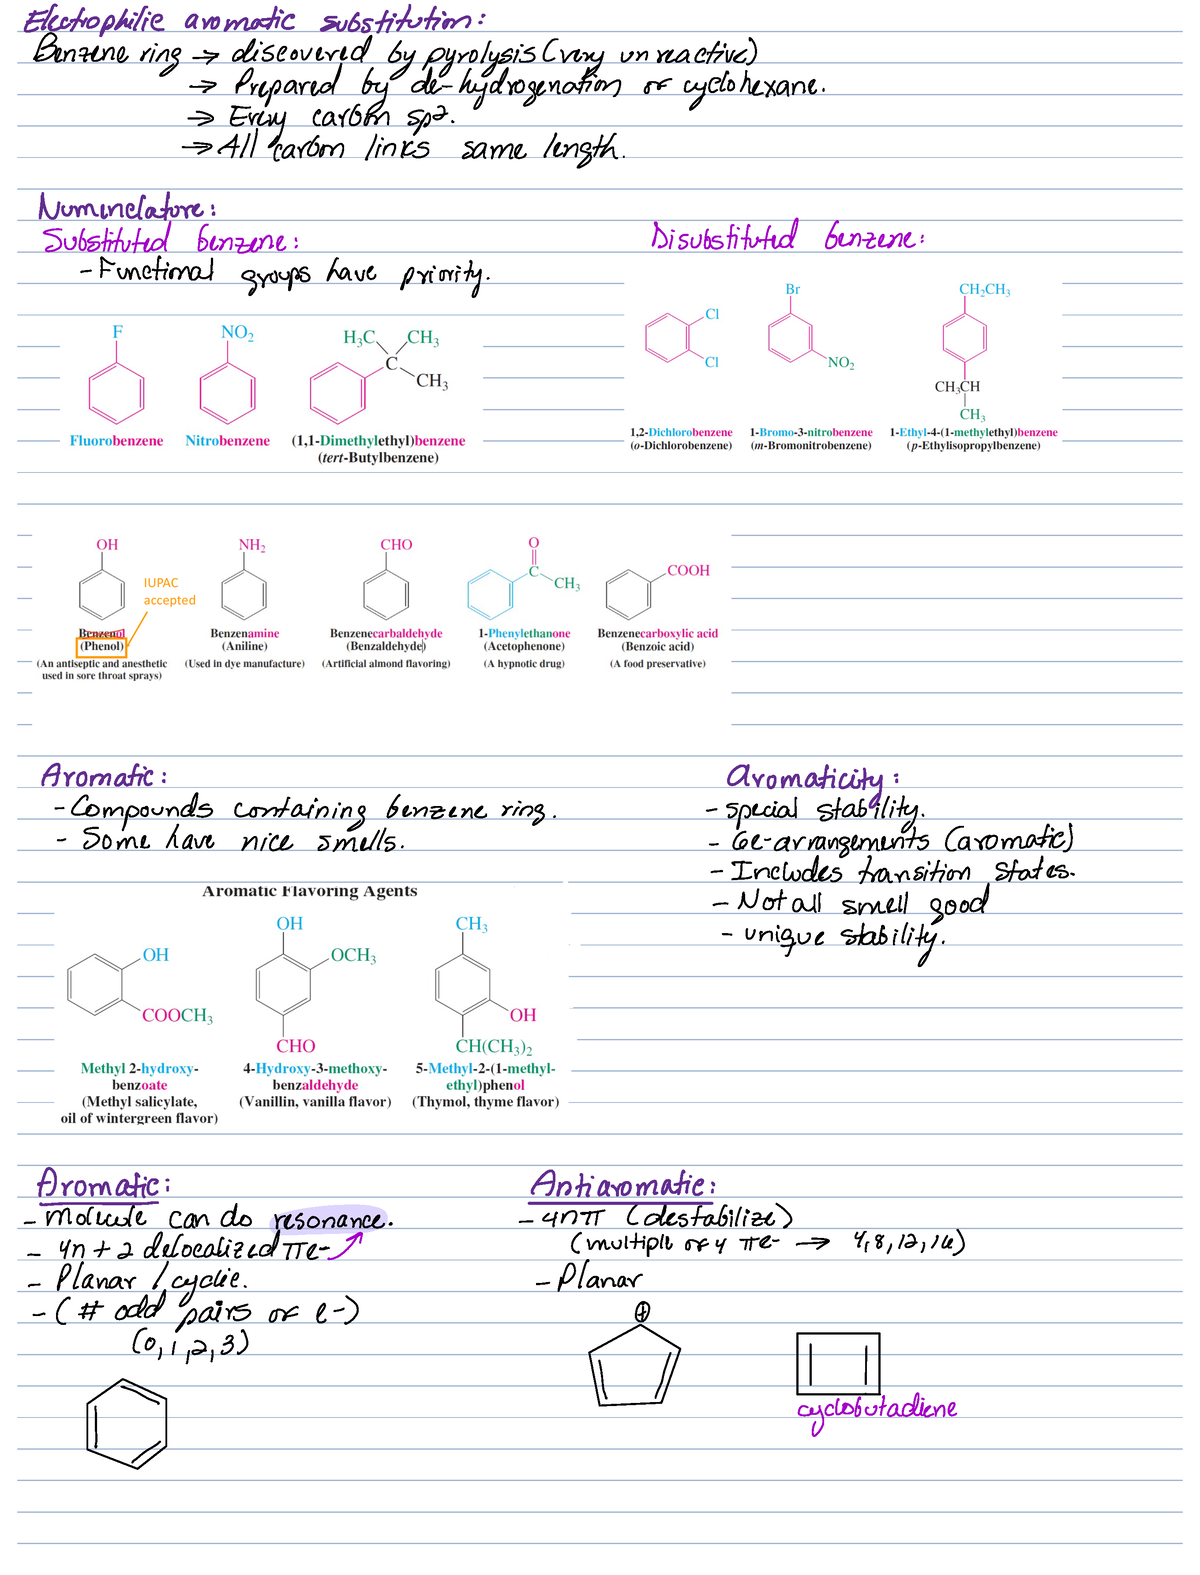 Electrophilic aromatic substitution:
Benzene ring → discovered by pyrolysis (very unreactive)
→ Prepared by de-hydrogenation of cyclohexane.
→ Every carbon sp².
→ All carbon links same length.
Nomenclature:
Substituted benzene:
- Functional groups have priority.
Disubstituted benzene:
F
NO₂
H₃C CH₃
C
CH₃
Fluorobenzene Nitrobenzene (1,1-Dimethylethyl)benzene
(tert-Butylbenzene)
Cl
Cl
Br
NO₂
CH₂CH₃
CH₃CH
CH₃
1,2-Dichlorobenzene 1-Bromo-3-nitrobenzene 1-Ethyl-4-(1-methylethyl)benzene
(o-Dichlorobenzene) (m-Bromonitrobenzene) (p-Ethylisopropylbenzene)
OH
NH₂
CHO
O
C
CH₃
COOH
IUPAC
accepted
Benzenol Benzenamine Benzenecarbaldehyde 1-Phenylethanone Benzenecarboxylic acid
(Phenol) (Aniline) (Benzaldehyde) (Acetophenone) (Benzoic acid)
(An antiseptic and anesthetic (Used in dye manufacture) (Artificial almond flavoring) (A hypnotic drug) (A food preservative)
used in sore throat sprays)
Aromatic:
- Compounds containing benzene ring.
- Some have nice smells.
Aromaticity:
- special stability.
- 6e- arrangements (aromatic)
- Includes transition states.
- Not all smell good
- unique stability.
Aromatic Flavoring Agents
OH
COOCH₃
OH
OCH₃
CHO
CH₃
OH
CH(CH₃)₂
Methyl 2-hydroxy-
benzoate
(Methyl salicylate,
oil of wintergreen flavor)
4-Hydroxy-3-methoxy-
benzaldehyde
(Vanillin, vanilla flavor)
5-Methyl-2-(1-methyl-
ethyl)phenol
(Thymol, thyme flavor)
Aromatic:
- molecule can do resonance.
- 4n + 2 delocalized πe-
- Planar / cyclic.
- (# odd pairs of e-)
(0,1,2,3)
Antiaromatic:
- 4nπ (destabilize)
(multiple of 4 πe- → 4,8,12,16)
- Planar
⊕
cyclobutadiene